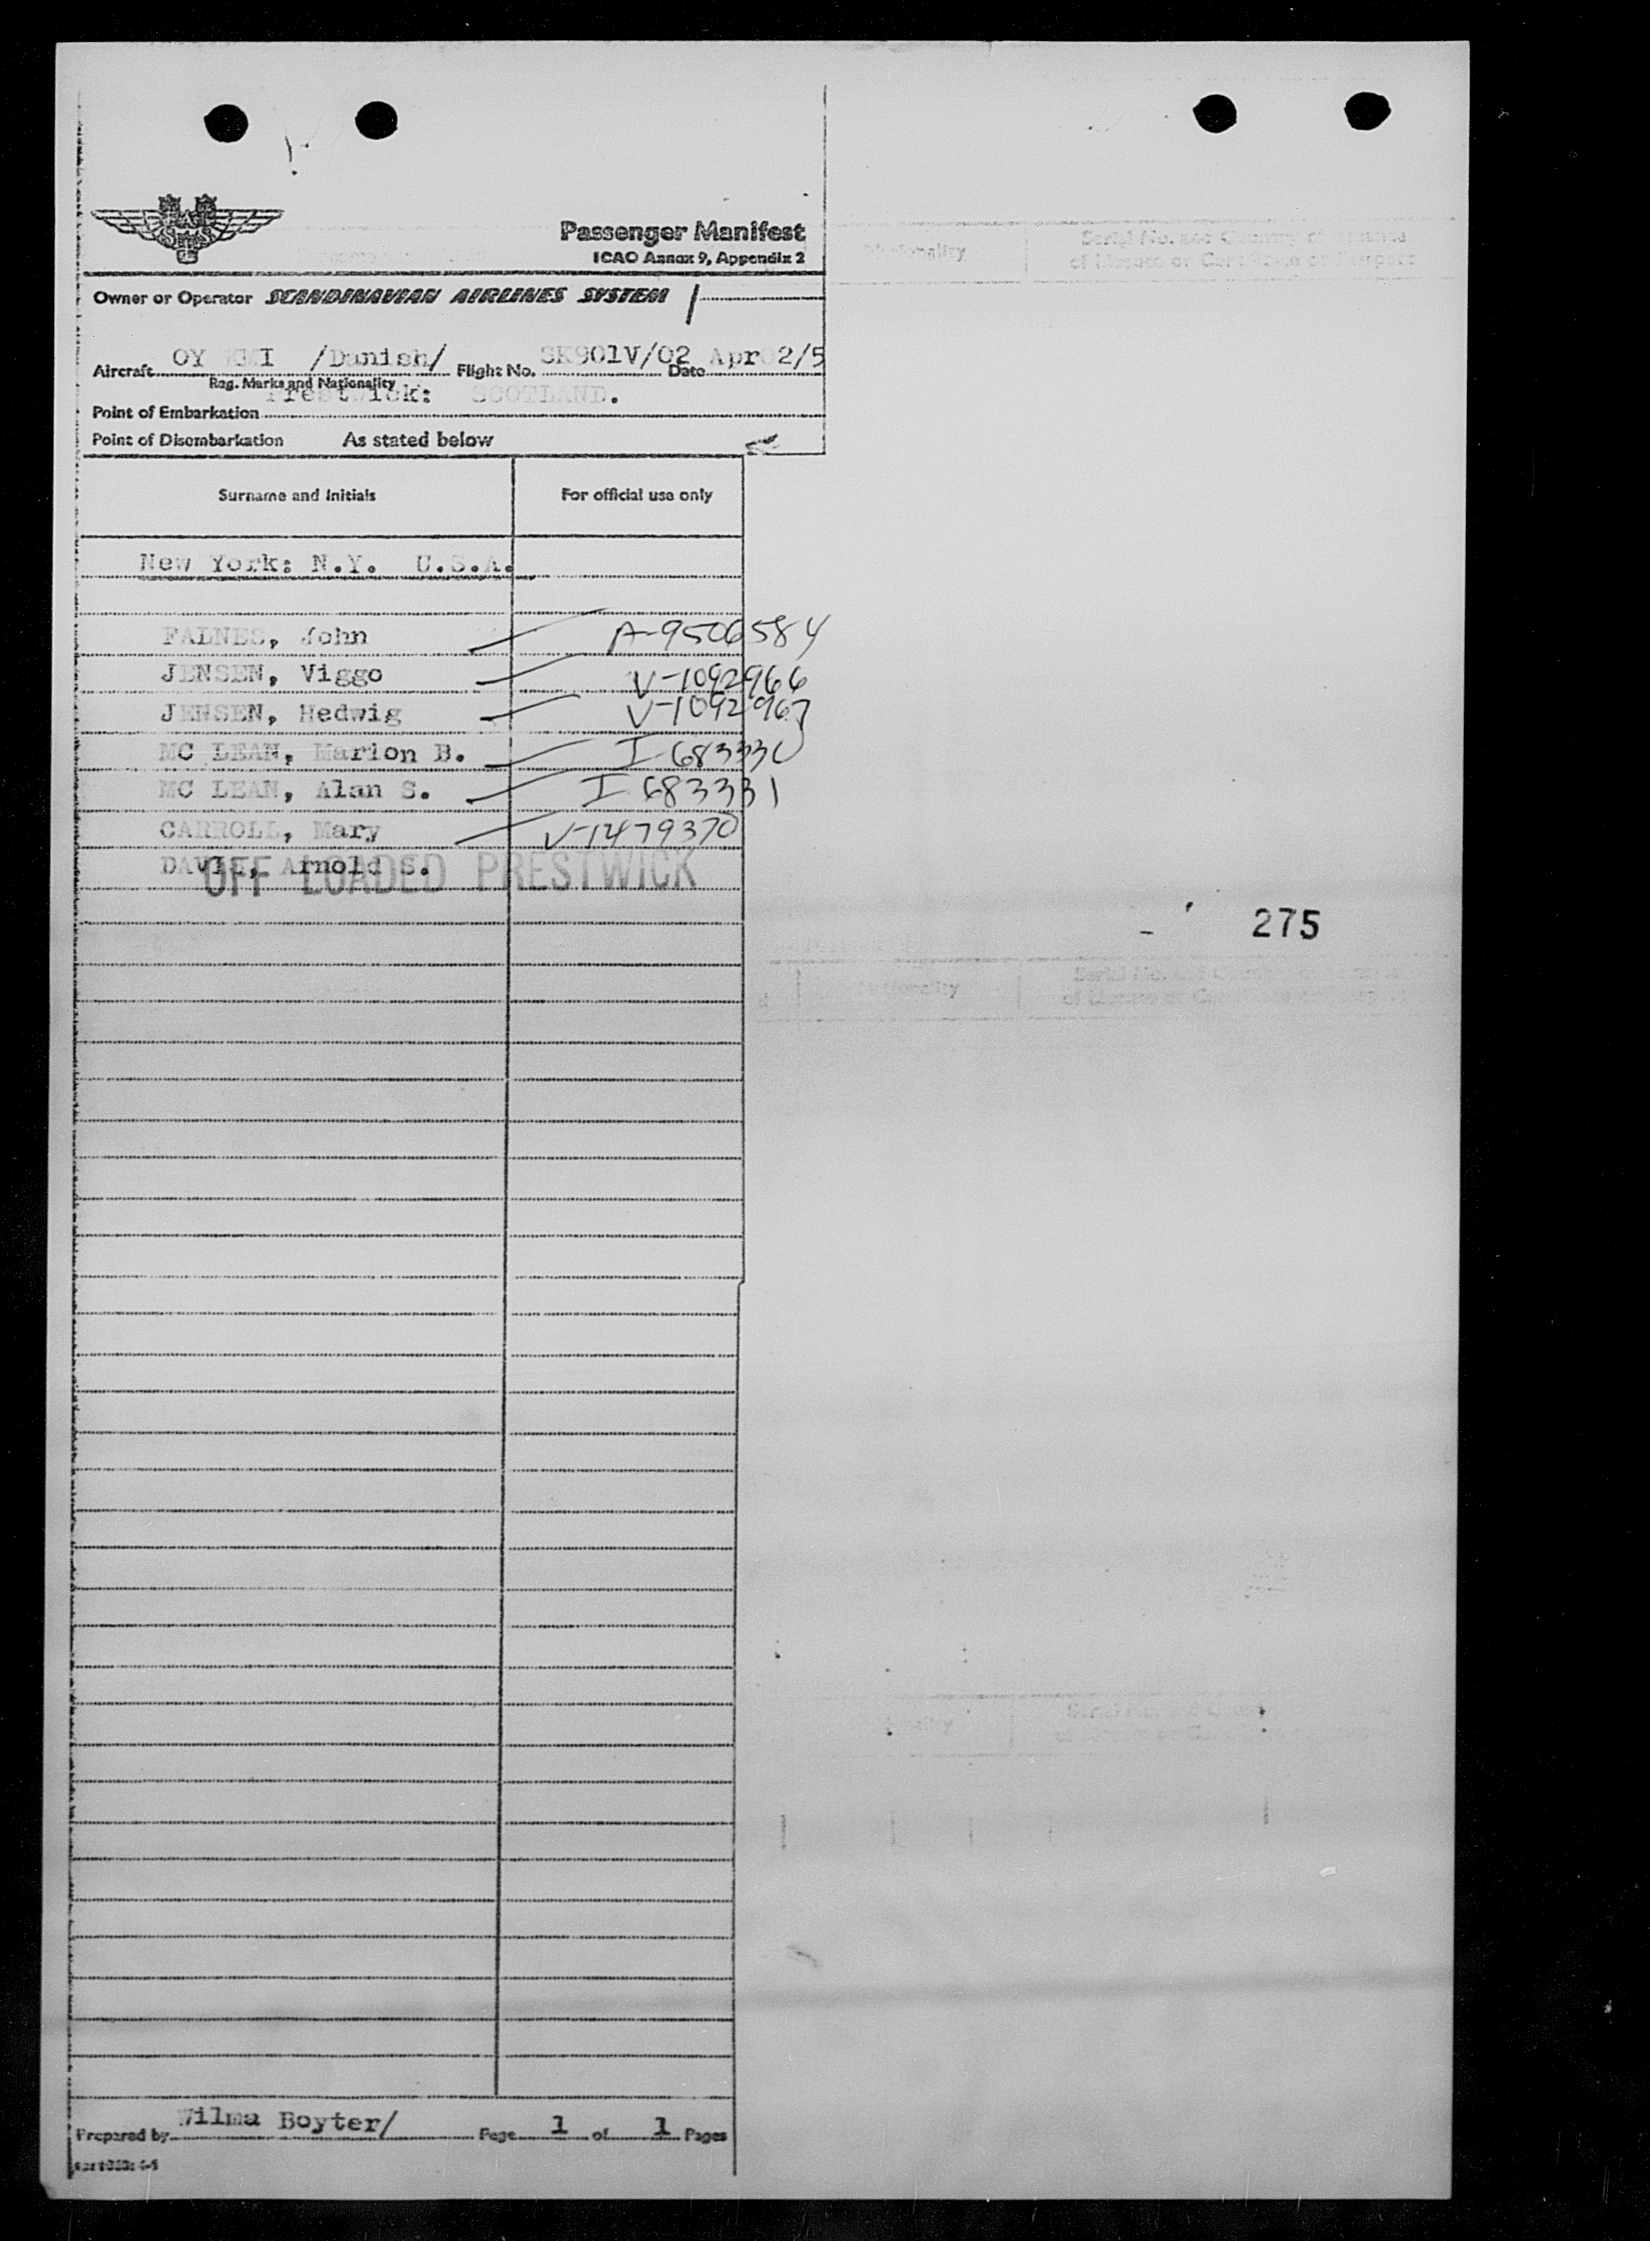 Passenger Manifest
ICAO Annex 9, Appendix 2
Owner or Operator SCANDINAVIAN AIRLINES SYSTEM
Aircraft OY /Danish/ Flight No. SK901V/02 Date Apr 02/5
Reg. Marks and Nationality
Prestwick: SCOTLAND.
Point of Embarkation
Point of Disembarkation As stated below
Surname and Initials For official use only
New York: N.Y. U.S.A.
FADNES, John A-9506584
JENSEN, Viggo V-1092966
JENSEN, Hedwig V-1092967
MC LEAN, Marion B. I-683330
MC LEAN, Alan S. I 683331
CARROLL, Mary V-1479370
Arnold S.
OFF LOADED PRESTWICK
275
Prepared by Wilma Boyter/ Page 1 of 1 Pages